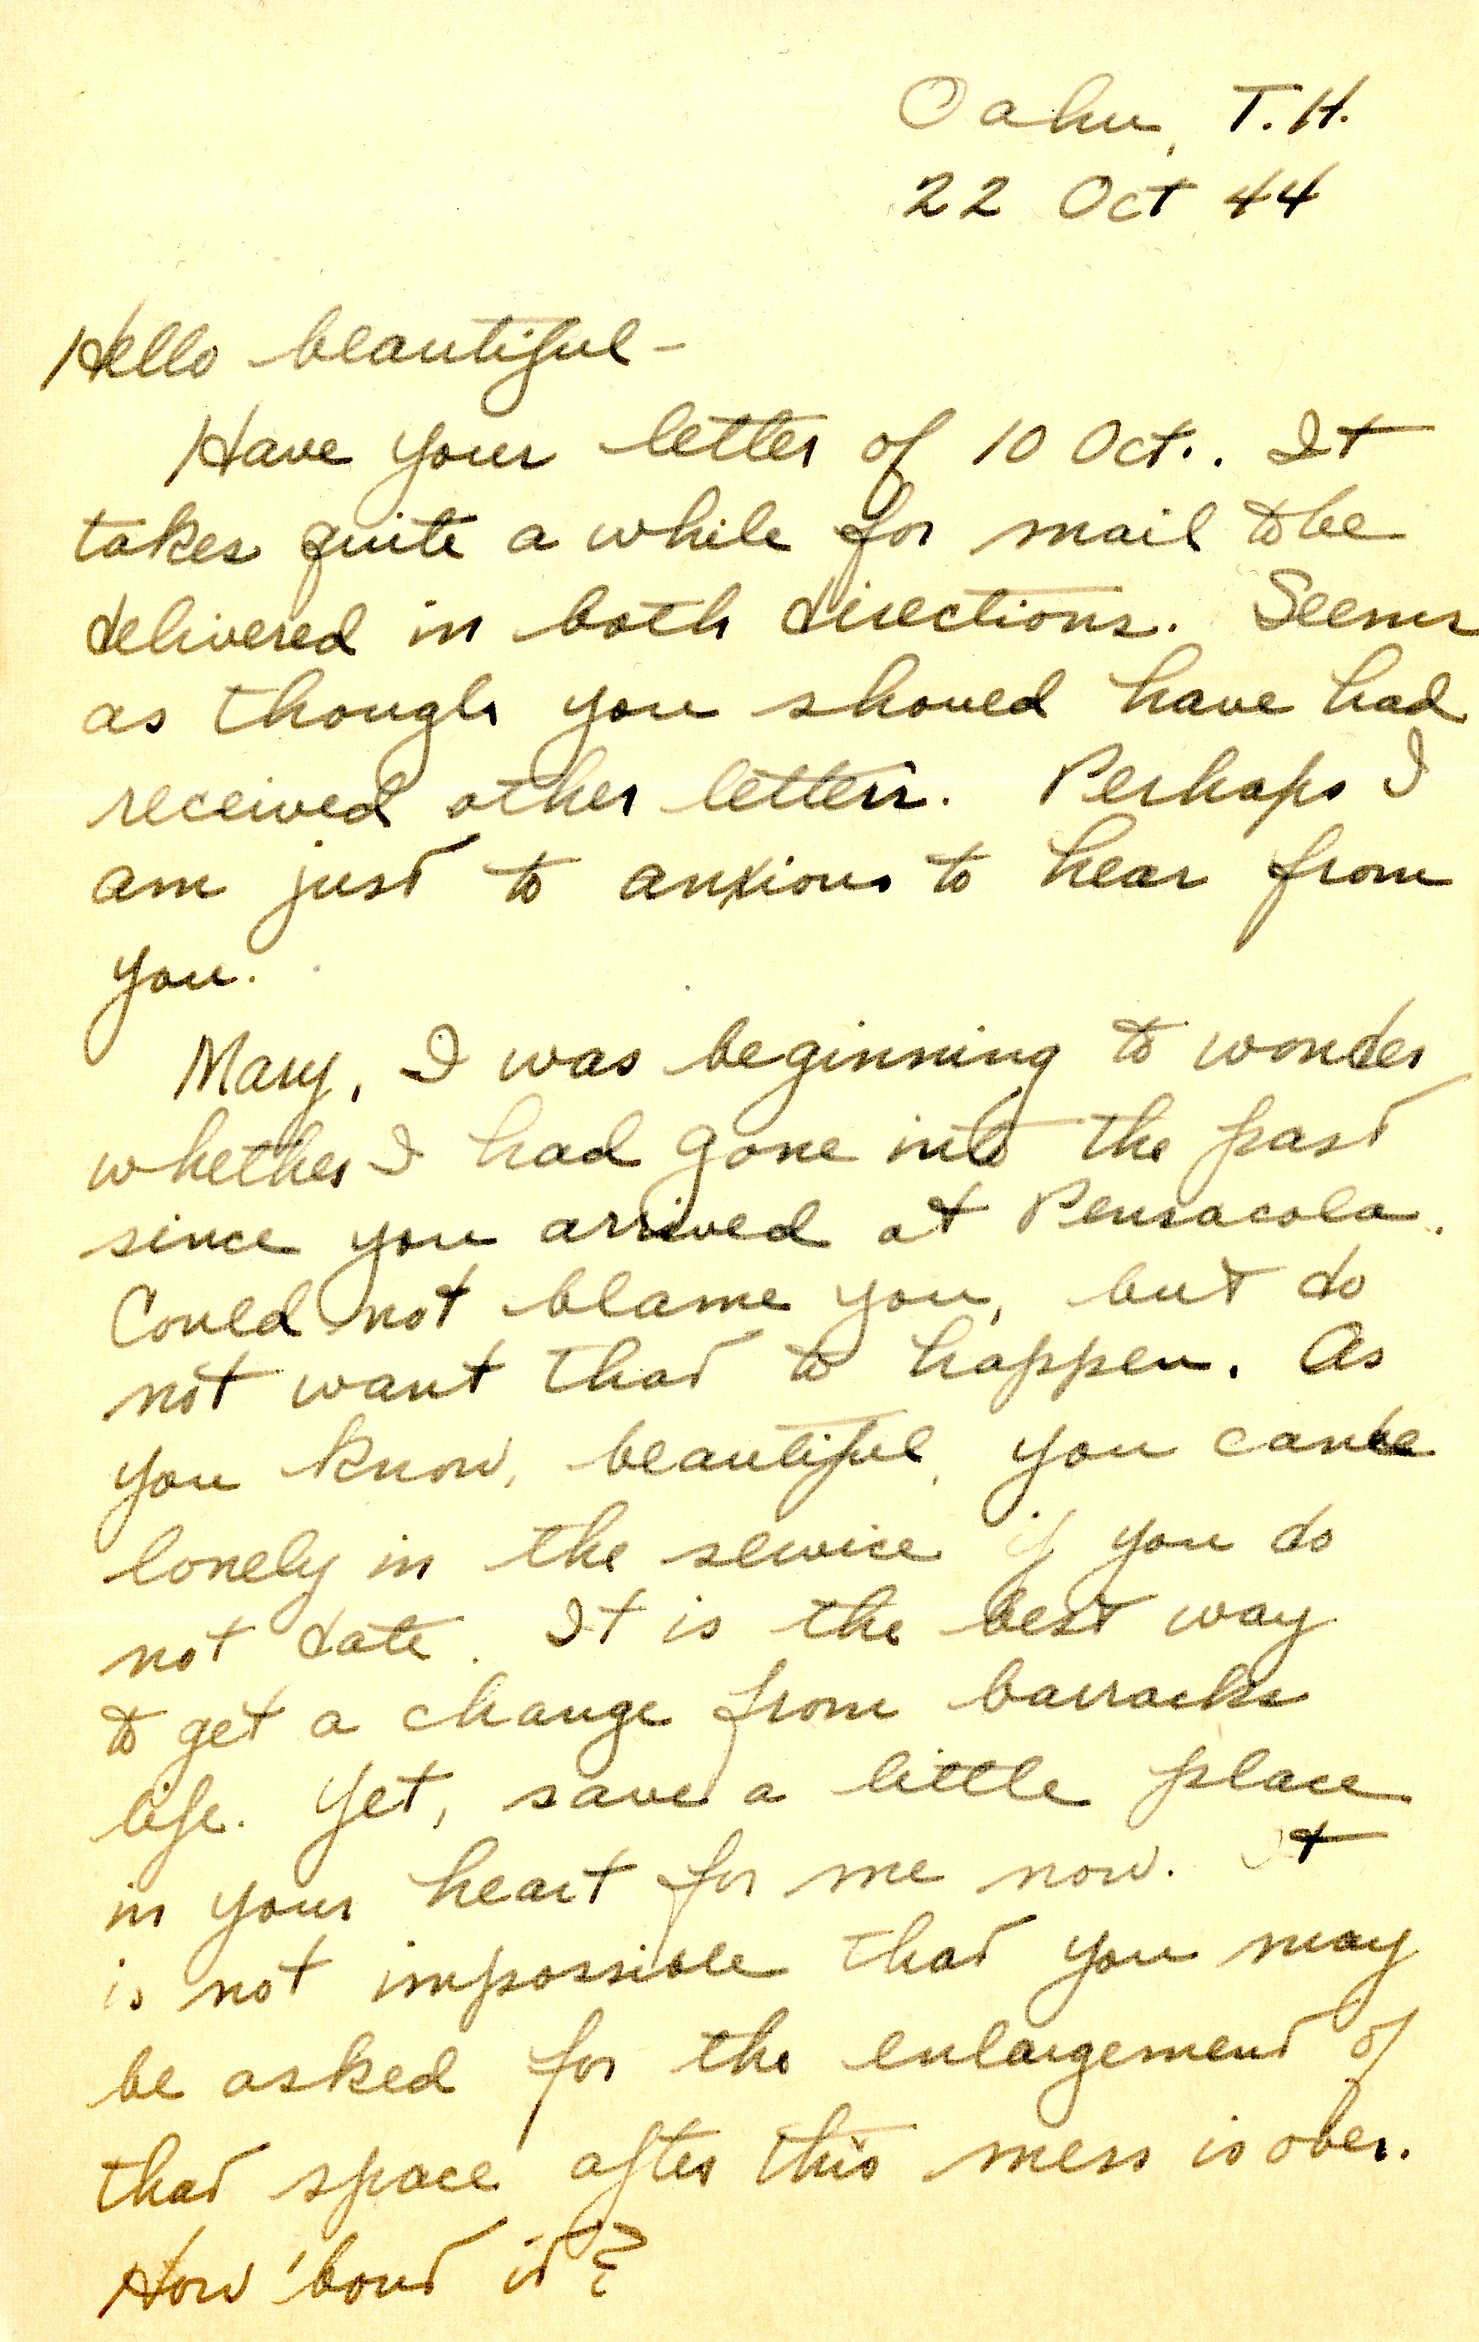 Oahu, T.H.
22 Oct 44
Hello beautiful -
Have your letter of 10 Oct.. It
takes quite a while for mail to be
delivered in both directions. Seems
as though you shoued have had
received other letters. Perhaps I
am just to anxious to hear from
you.
Mary, I was beginning to wonder
whether I had gone into the past
since you arrived at Pensacola.
Could not blame you, but do
not want that to happen. As
you know, beautiful, you can be
lonely in the service if you do
not date. It is the best way
to get a change from barracks
life. Yet, save a little place
in your heart for me now. It
is not impossible that you may
be asked for the enlargement of
that space after this mess is over.
How 'bout it?